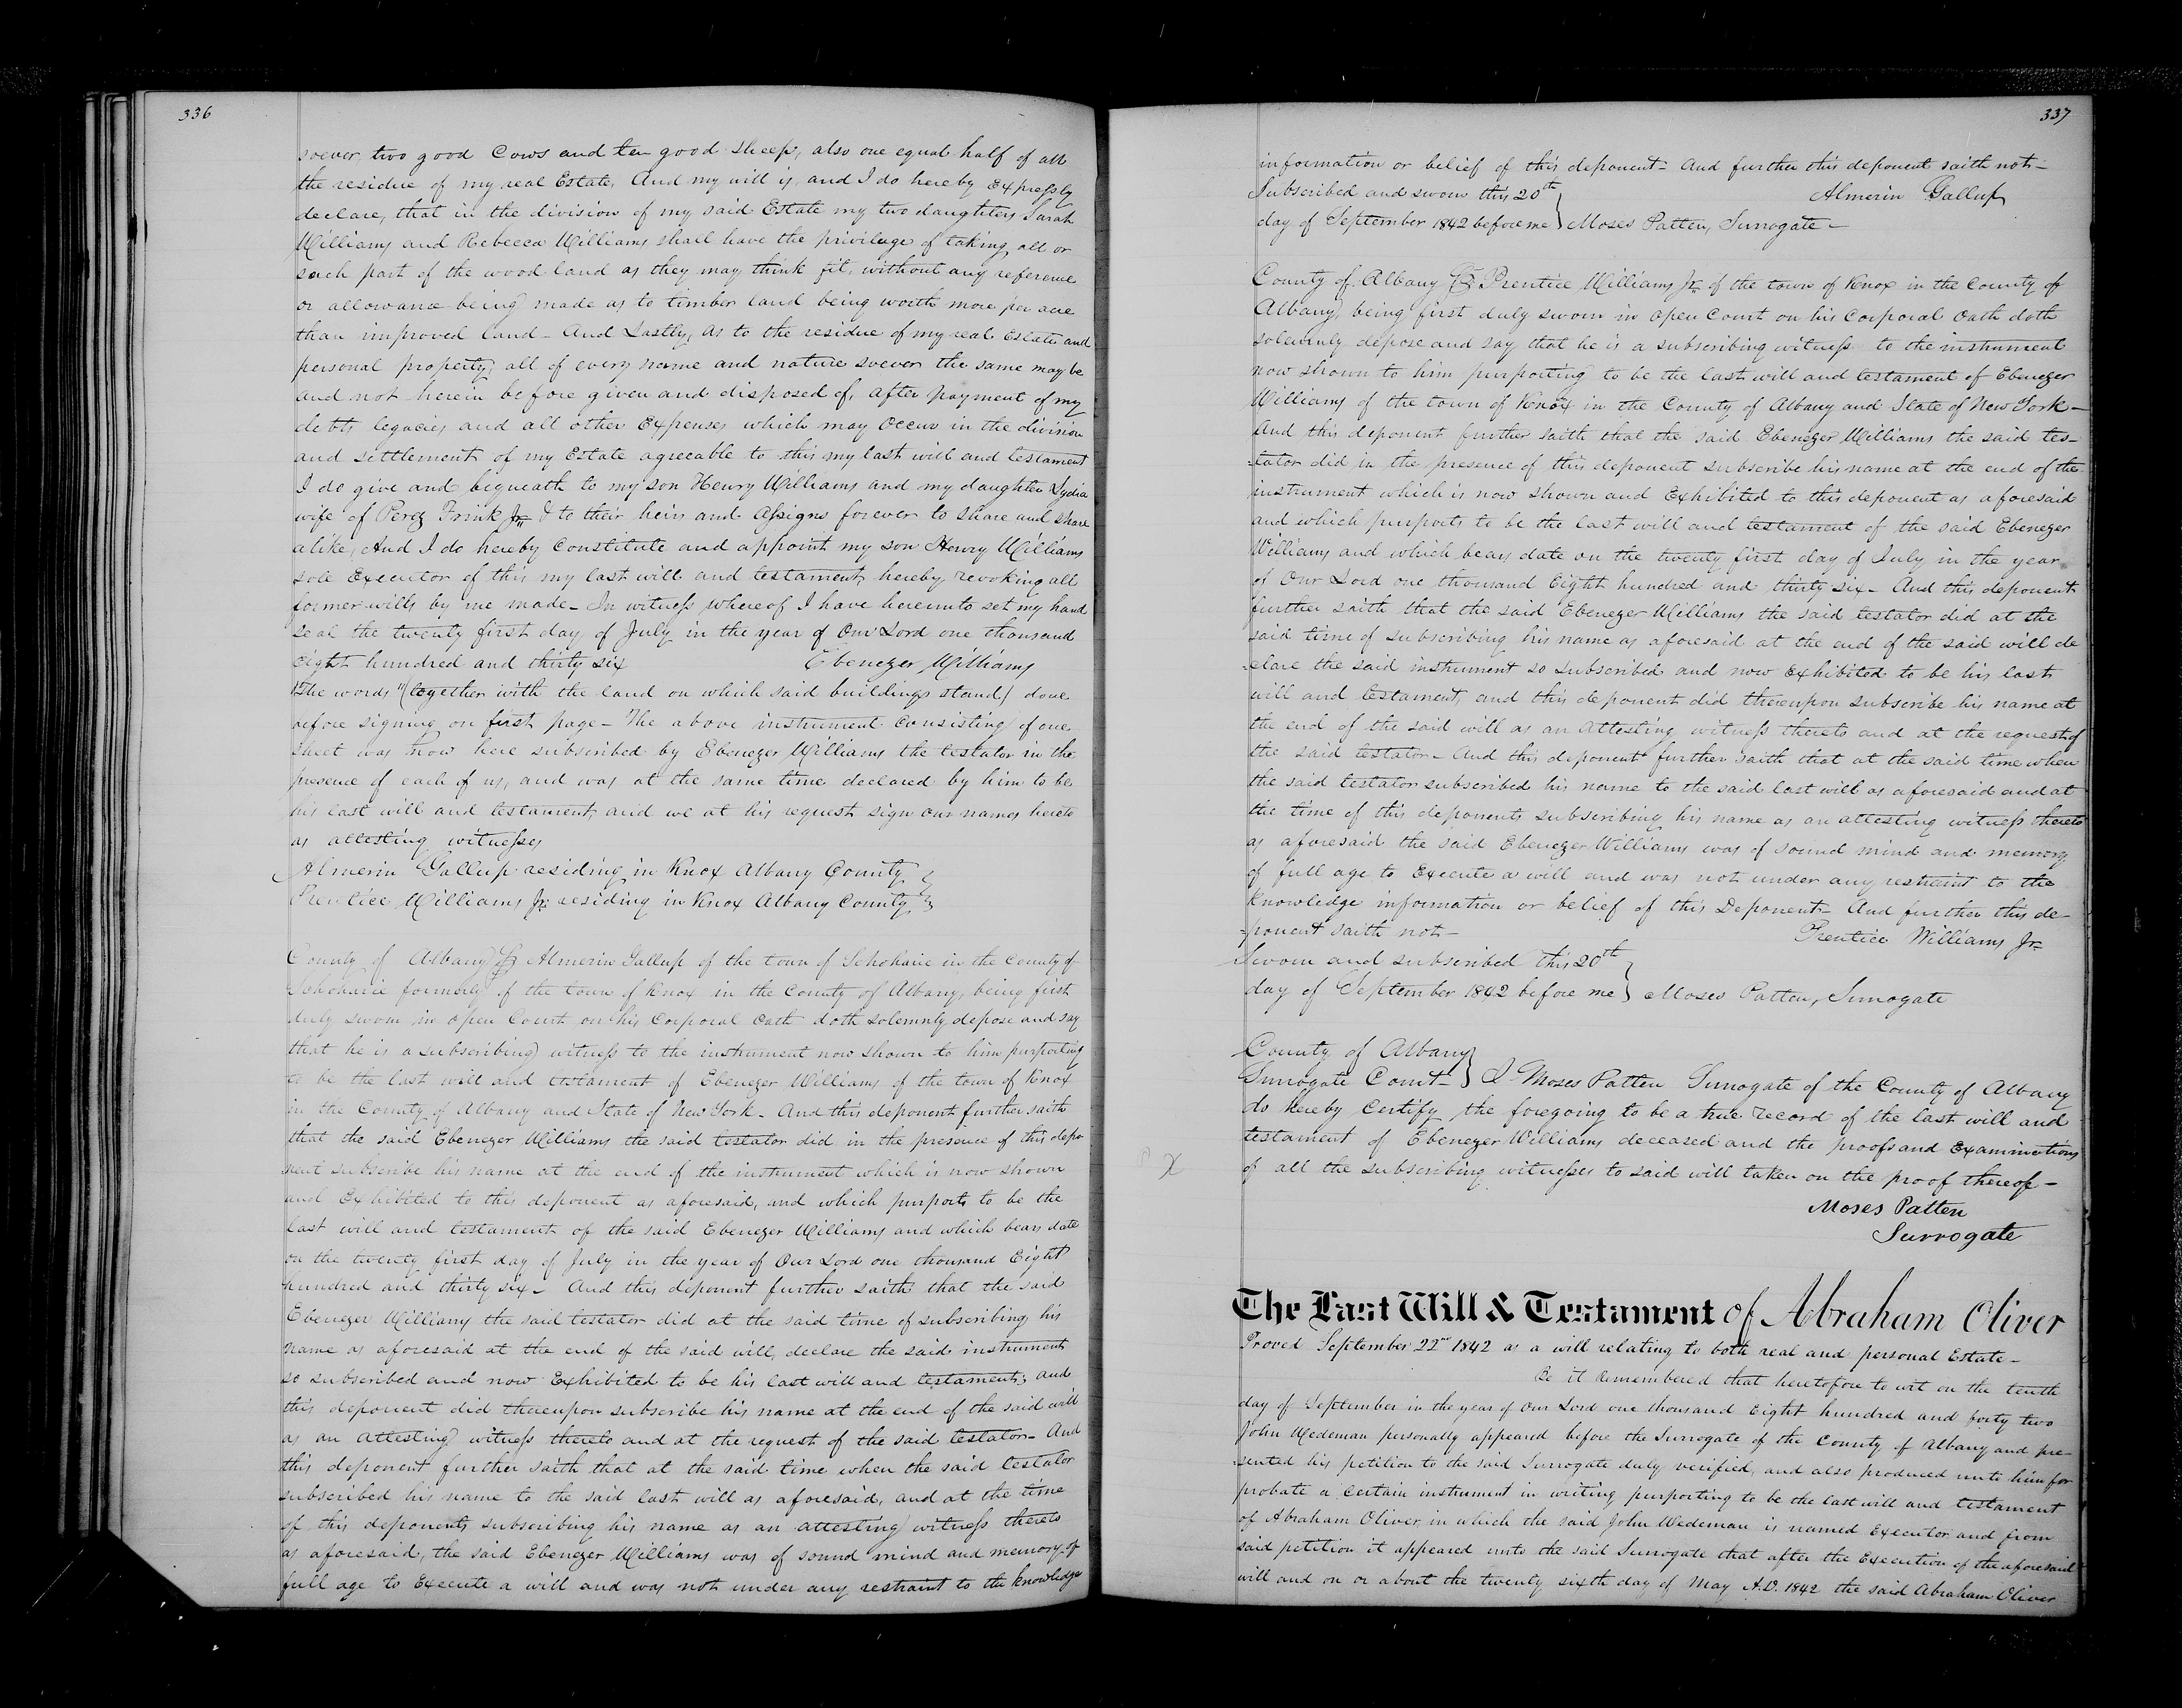 336
soever, two good Cows and ten good sheep, also one equal half of all
the residue of my real Estate, And my will is, and I do hereby Expressly
declare, that in the division of my said Estate my two daughters Sarah
Williams and Rebecca Williams shall have the privilege of taking all or
such part of the wood land as they may think fit, without any reference
or allowance being made as to timber land being worth more per acre
than improved land - And Lastly, as to the residue of my real Estate and
personal property, all of every name and nature soever the same may be
and not herein before given and disposed of, after payment of my
debts legacies and all other Expenses which may Occur in the division
and settlement of my Estate agreeable to this my last will and testament
I do give and bequeath to my son Henry Williams and my daughter Lydia
wife of Perez Frink Jr & to their heirs and Assigns forever to share and share
alike, And I do hereby Constitute and appoint my son Henry Williams
sole Executor of this my last will and testament, hereby revoking all
former wills by me made - In witness whereof I have hereunto set my hand
seal the twenty first day of July in the year of Our Lord one thousand
Eight hundred and thirty six Ebenezer Williams
The words "(together with the land on which said buildings stand) done
before signing on first page - The above instrument Consisting of one
sheet was now here subscribed by Ebenezer Williams the testator in the
presence of each of us, and was at the same time declared by him to be
his last will and testament, and we at his request sign our names hereto
as attesting witnesses
Almerin Gallup residing in Knox Albany County
Prentice Williams Jr. residing in Knox Albany County
County of Albany Ss Almerin Gallup of the town of Schoharie in the County of
Schoharie formerly of the town of Knox in the County of Albany, being first
duly sworn in open Court on his Corporal Oath doth solemnly depose and say
that he is a subscribing witness to the instrument now shown to him purporting
to be the last will and testament of Ebenezer Williams of the town of Knox
in the County of Albany and State of New York - And this deponent further saith
that the said Ebenezer Williams the said testator did in the presence of this depo
nent subscribe his name at the end of the instrument which is now shown
and Exhibited to this deponent as aforesaid, and which purports to be the
last will and testament of the said Ebenezer Williams and which bears date
on the twenty first day of July in the year of Our Lord one thousand Eight
hundred and thirty six - And this deponent further saith that the said
Ebenezer Williams the said testator did at the said time of subscribing his
name as aforesaid at the end of the said will, declare the said instrument
so subscribed and now Exhibited to be his last will and testament, and
this deponent did thereupon subscribe his name at the end of the said will
as an attesting witness thereto and at the request of the said testator - And
this deponent further saith that at the said time when the said testator
subscribed his name to the said last will as aforesaid, and at the time
of this deponents subscribing his name as an attesting witness thereto
as aforesaid, the said Ebenezer Williams was of sound mind and memory of
full age to Execute a will and was not under any restraint to the knowledge
337
information or belief of this deponent - And further this deponent saith not -
Subscribed and sworn this 20th Almerin Gallup
day of September 1842 before me } Moses Patten, Surrogate -
County of Albany Ss Prentice Williams Jr. of the town of Knox in the County of
Albany, being first duly sworn in open Court on his Corporal Oath doth
solemnly depose and say that he is a subscribing witness to the instrument
now shown to him purporting to be the last will and testament of Ebenezer
Williams of the town of Knox in the County of Albany and State of New York -
And this deponent further saith that the said Ebenezer Williams the said tes-
-tator did in the presence of this deponent subscribe his name at the end of the
instrument which is now shown and Exhibited to this deponent as aforesaid
and which purports to be the last will and testament of the said Ebenezer
Williams and which bears date on the twenty first day of July in the year
of Our Lord one thousand Eight hundred and thirty six - And this deponent
further saith that the said Ebenezer Williams the said testator did at the
said time of subscribing his name as aforesaid at the end of the said will de
-clare the said instrument so subscribed and now Exhibited to be his last
will and testament, and this deponent did thereupon subscribe his name at
the end of the said will as an attesting witness thereto and at the request of
the said testator - And this deponent further saith that at the said time when
the said testator subscribed his name to the said last will as aforesaid and at
the time of this deponents subscribing his name as an attesting witness thereto
as aforesaid the said Ebenezer Williams was of sound mind and memory
of full age to Execute a will and was not under any restraint to the
Knowledge information or belief of this Deponent - And further this de-
-ponent saith not - Prentice Williams Jr.
Sworn and subscribed this 20th
day of September 1842 before me } Moses Patten, Surrogate
County of Albany
Surrogate Court - } I Moses Patten Surrogate of the County of Albany
do hereby Certify the foregoing to be a true record of the last will and
testament of Ebenezer Williams deceased and the proofs and Examinations
of all the subscribing witnesses to said will taken on the proof thereof -
Moses Patten
Surrogate
X
The Last Will & Testament of Abraham Oliver
Proved September 22nd 1842 as a will relating to both real and personal Estate -
Be it Remembered that heretofore to wit on the tenth
day of September in the year of Our Lord one thousand Eight hundred and forty two
John Wedeman personally appeared before the Surrogate of the County of Albany and pre-
-sented his petition to the said Surrogate duly verified, and also produced unto him for
probate a certain instrument in writing purporting to be the last will and testament
of Abraham Oliver, in which the said John Wedeman is named Executor, and from
said petition it appeared unto the said Surrogate that after the Execution of the aforesaid
will and on or about the twenty sixth day of May A.D. 1842 the said Abraham Oliver